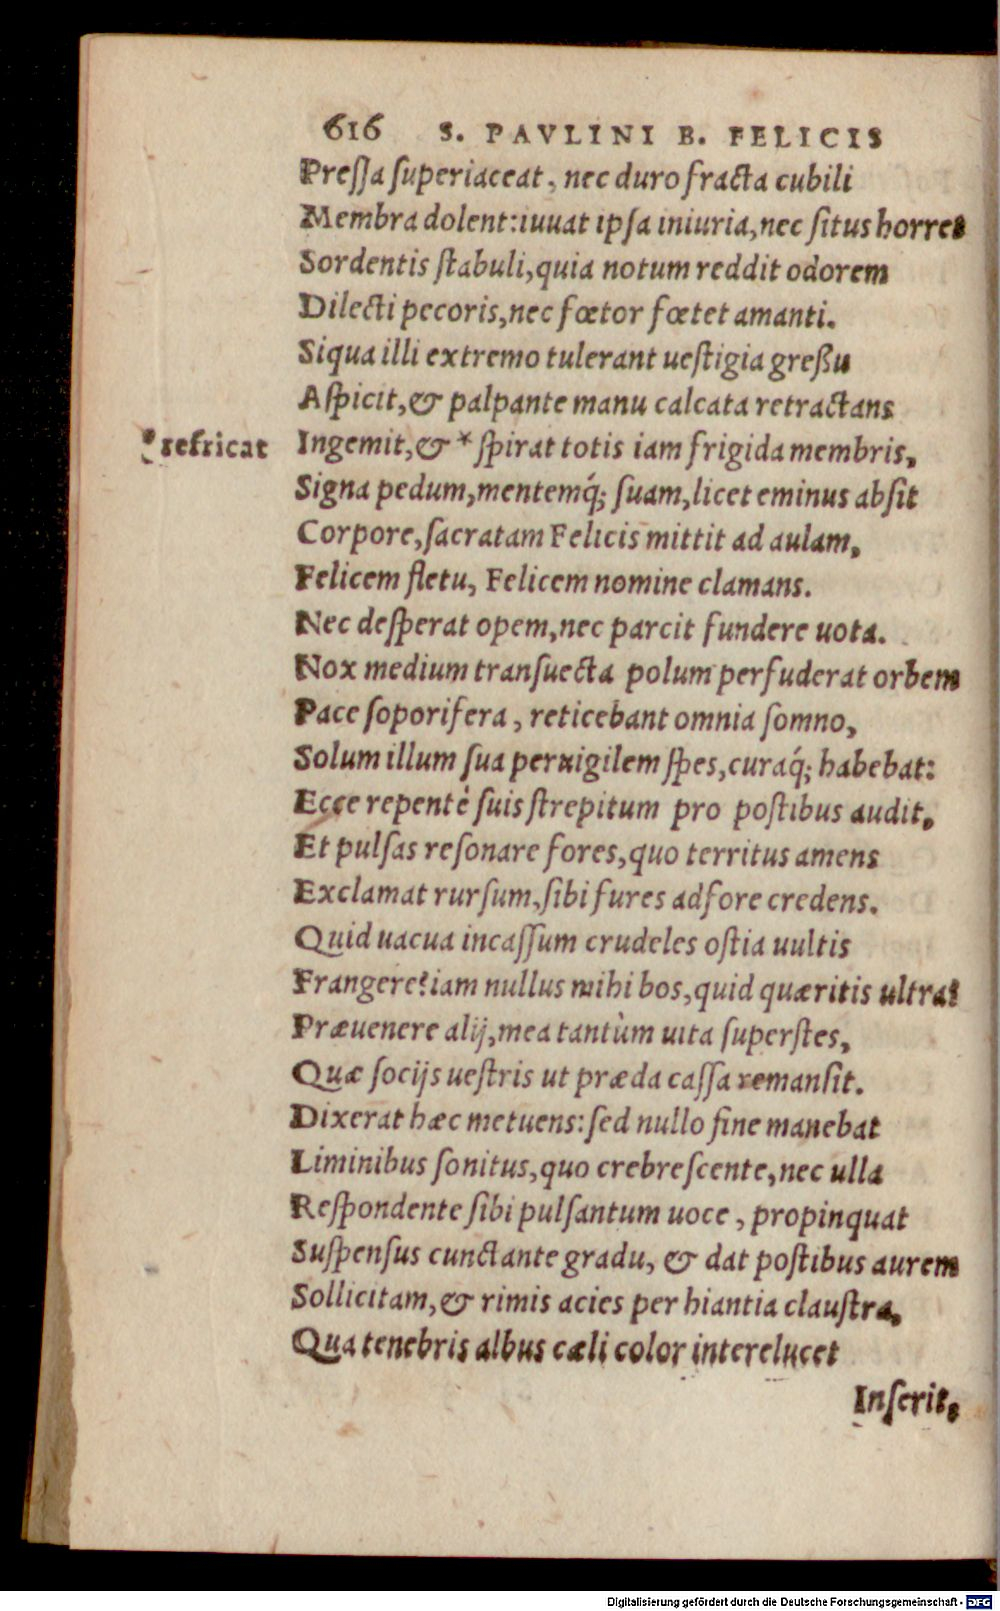 616 S. PAVLINI B. FELICIS
Preſſa ſuperiaceat, nec duro fracta cubili
Membra dolent: iuuat ipſa iniuria, nec ſitus horret
Sordentis ſtabuli, quia notum reddit odorem
Dilecti pecoris, nec fœtor fœtet amanti.
Siqua illi extremo tulerant ueſtigia greßu
Aſpicit, & palpante manu calcata retractans
* refricat Ingemit, & * ſpirat totis iam frigida membris,
Signa pedum, mentemq́; ſuam, licet eminus abſit
Corpore, ſacratam Felicis mittit ad aulam,
Felicem fletu, Felicem nomine clamans.
Nec deſperat opem, nec parcit fundere uota.
Nox medium tranſuecta polum perfuderat orbem
Pace ſoporifera, reticebant omnia ſomno,
Solum illum ſua peruigilem ſpes, curaq́; habebat:
Ecce repentè ſuis ſtrepitum pro poſtibus audit,
Et pulſas reſonare fores, quo territus amens
Exclamat rurſum, ſibi fures adfore credens.
Quid uacua incaſſum crudeles oſtia uultis
Frangere? iam nullus mihi bos, quid quæritis ultra?
Præuenere alij, mea tantùm uita ſuperſtes,
Quæ ſocijs ueſtris ut præda caſſa remanſit.
Dixerat hæc metuens: ſed nullo fine manebat
Liminibus ſonitus, quo crebreſcente, nec ulla
Reſpondente ſibi pulſantum uoce, propinquat
Suſpenſus cunctante gradu, & dat poſtibus aurem
Sollicitam, & rimis acies per hiantia clauſtra,
Qua tenebris albus cæli color interelucet
Inſerit,
Digitalisierung gefördert durch die Deutsche Forschungsgemeinschaft - DFG